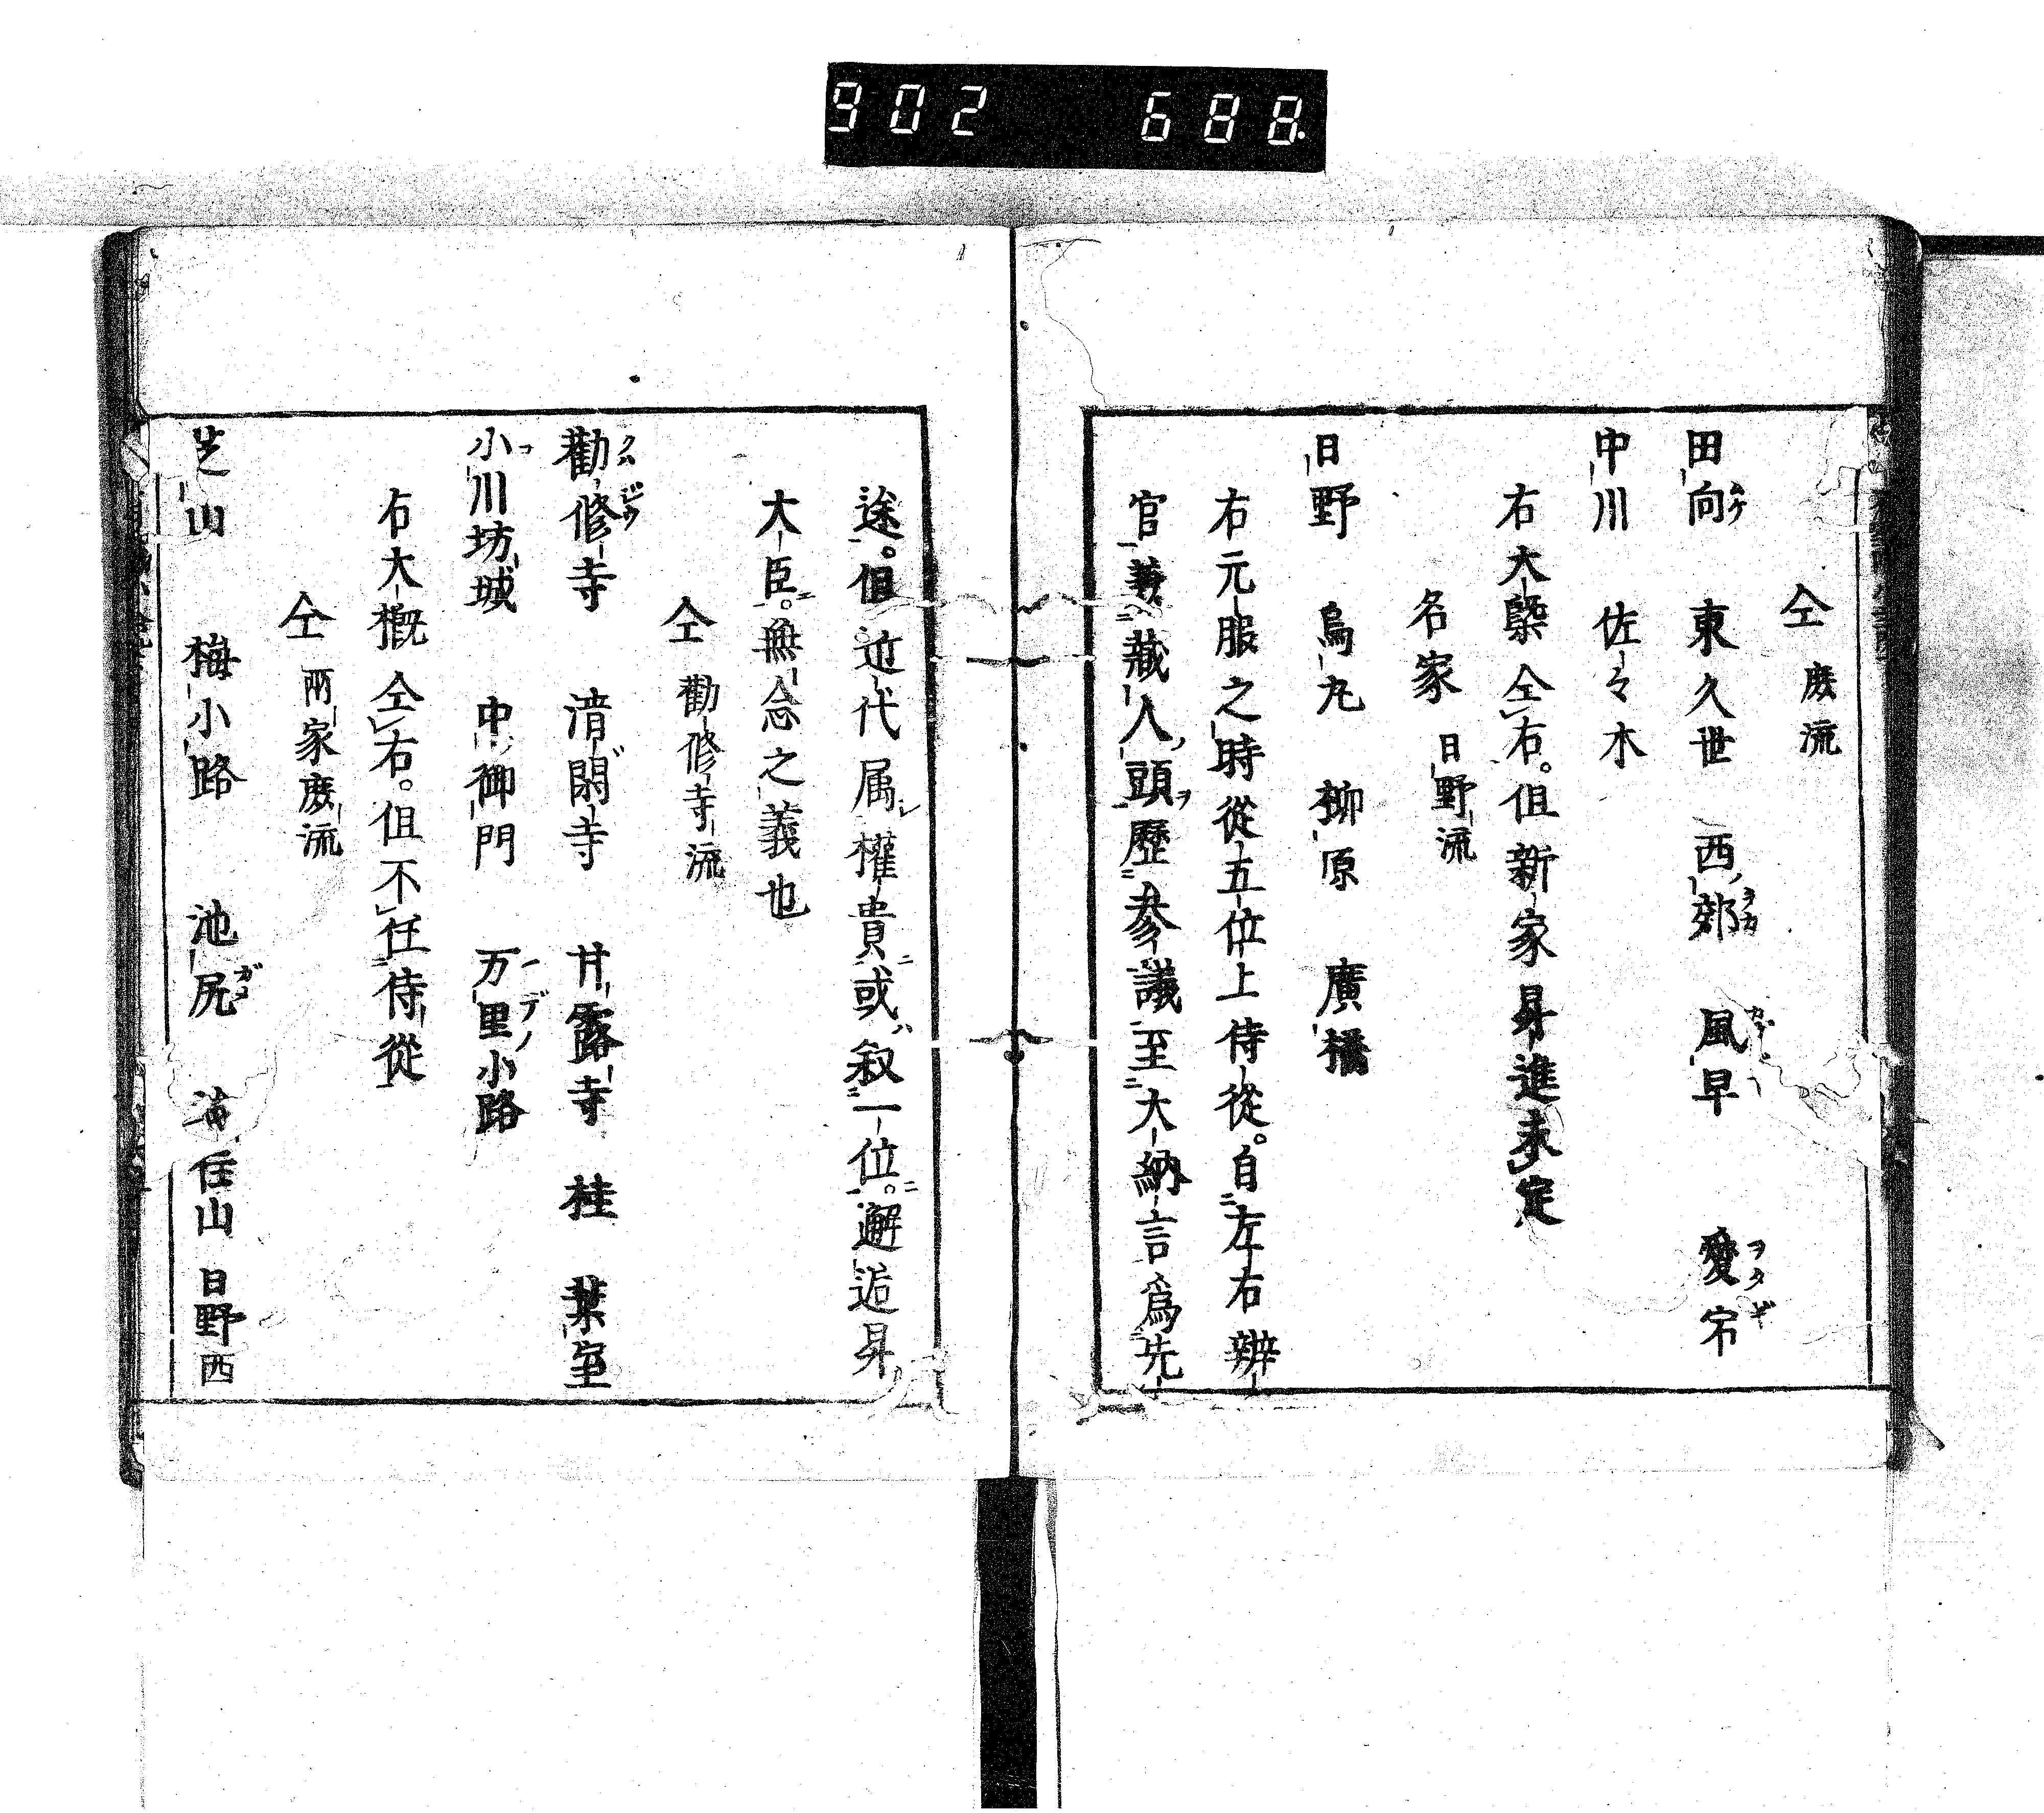 902 688.
仝 庶流
田向 東久世 西郊 風早 愛宕
中川 佐々木
右大槩仝右。但新家昇進未定
名家 日野流
日野 烏丸 柳原 廣橋
右元服之時從五位上侍從。自左右辨
官兼藏人頭歷參議至大納言爲先
途。但近代属權貴或叙一位。邂逅昇
大臣。無念之義也
仝 勸修寺流
勸修寺 清閑寺 甘露寺 桂 葉室
小川坊城 中御門 万里小路
右大概仝右。但不任侍從
仝 兩家庶流
芝山 梅小路 池尻 海住山 日野西